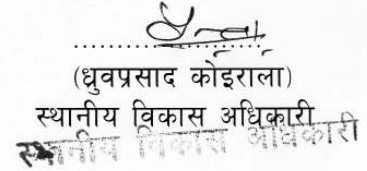 (ध्रुवप्रसाद कोइराला)
स्थानीय विकास अधिकारी
स्थानीय विकास अधिकारी